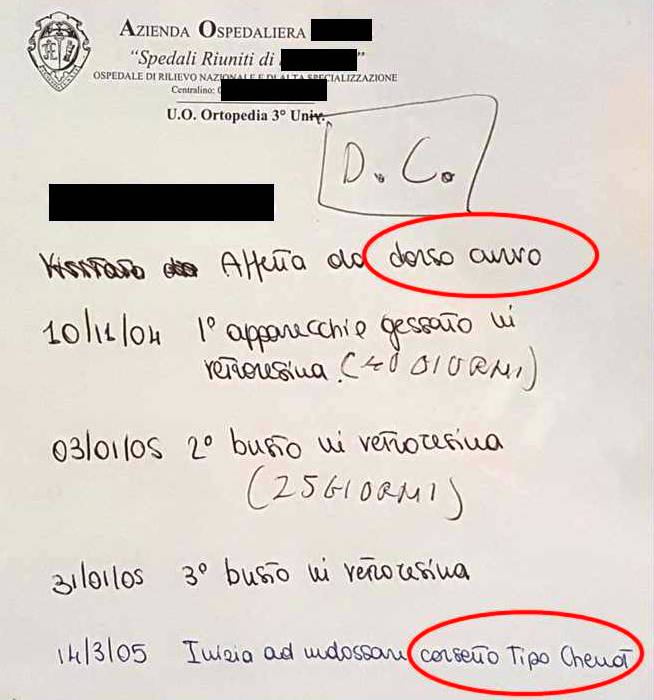 AZIENDA OSPEDALIERA
"Spedali Riuniti di
OSPEDALE DI RILIEVO NAZIONALE E DI ALTA SPECIALIZZAZIONE
Centralino:
U.O. Ortopedia 3° Univ.
D. C.
Affetta da dorso curvo
10/11/04 1° apparecchio gessato in
vetroresina. (40 GIORNI)
03/01/05 2° busto in vetroresina
(25 GIORNI)
31/01/05 3° busto in vetroresina
14/3/05 Inizia ad indossare corsetto Tipo Chenot